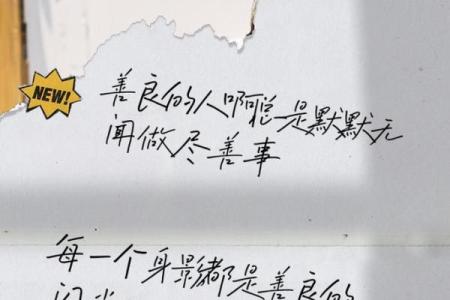 NEW!
善良的人啊总是默默无
闻做尽善事
每一个身影都是善良的
闪光